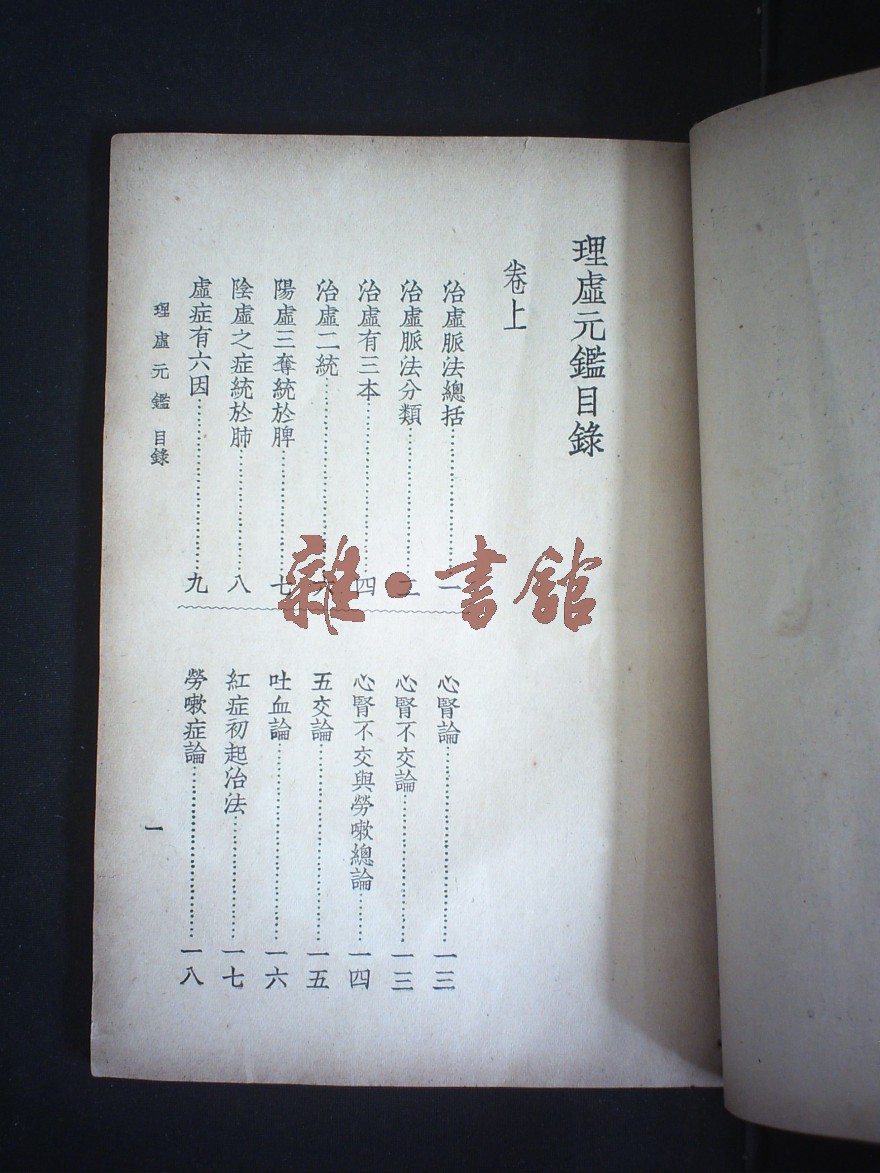 理虛元鑑目錄
卷上
治虛脈法總括……一
治虛脈法分類……二
治虛有三本……四
治虛二統……六
陽虛三奪統於脾……七
陰虛之症統於肺……八
虛症有六因……九
心腎論……一三
心腎不交論……一三
心腎不交與勞嗽總論……一四
五交論……一五
吐血論……一六
紅症初起治法……一七
勞嗽症論……一八
理虛元鑑 目錄
一
雜·書館